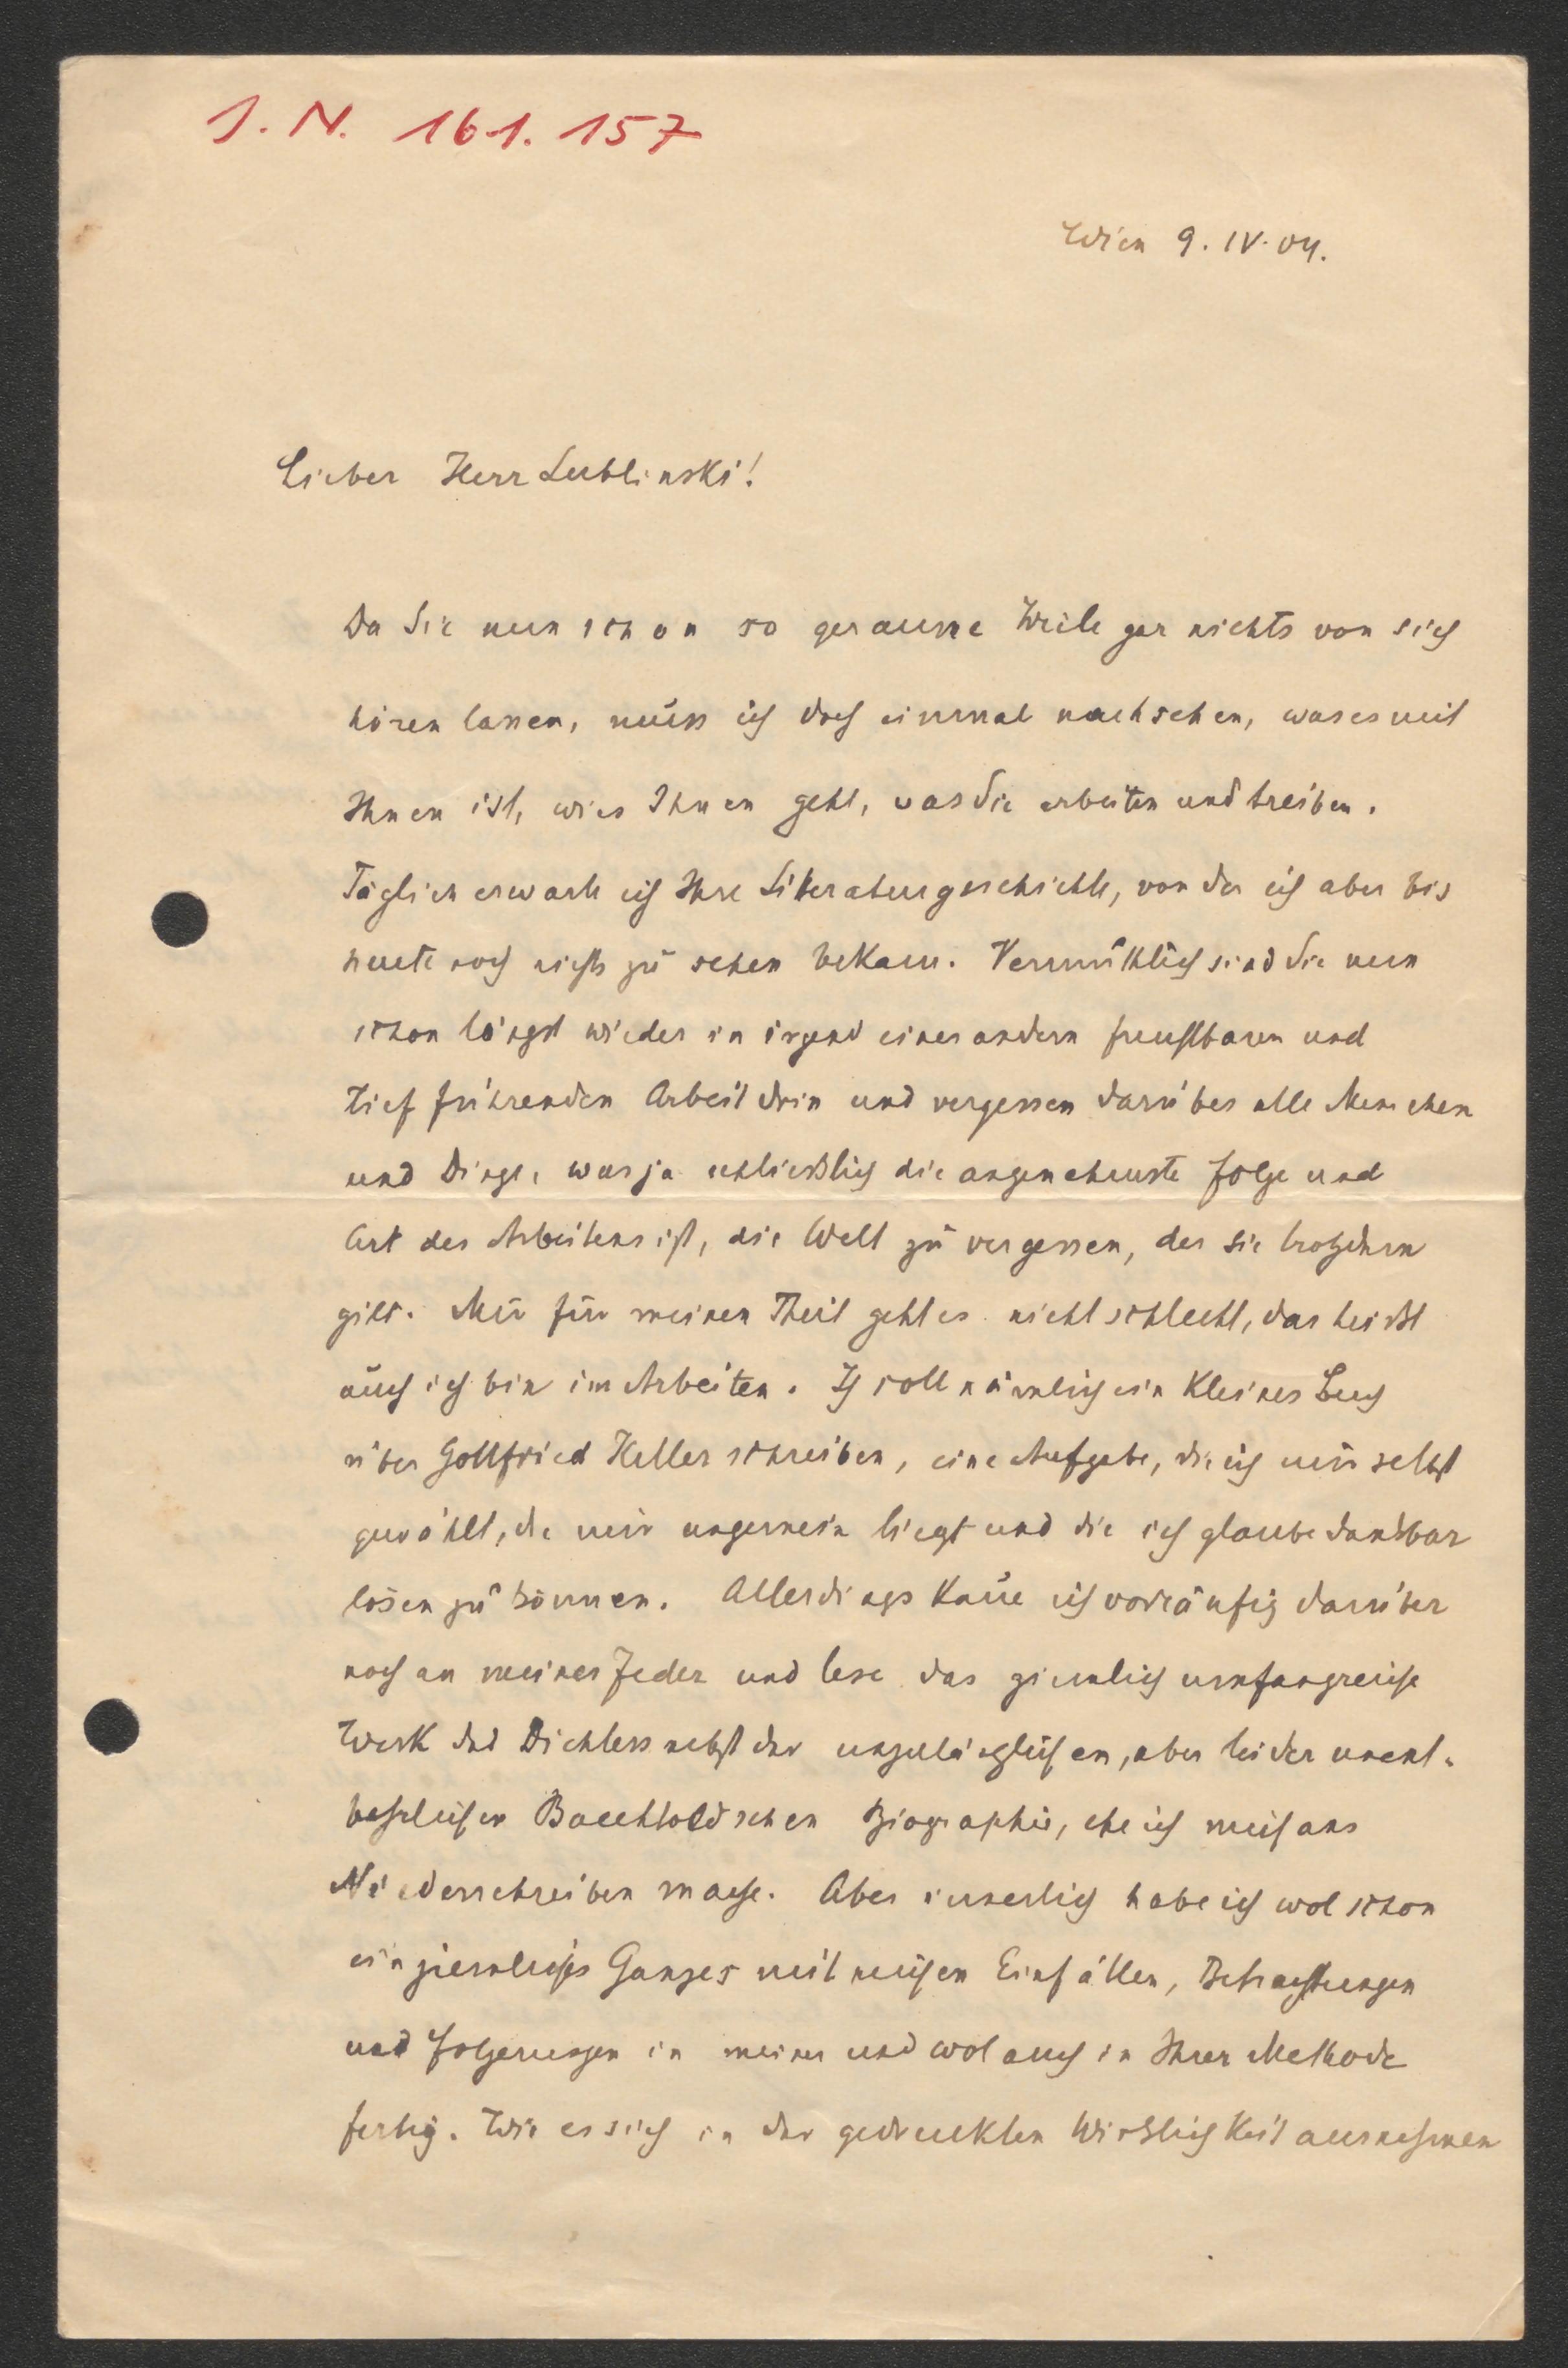 J. N. 161.157
Wien 9. IV. 04.
Lieber Herr Lublinski!
Da Sie nun schon so geraume Weile gar nichts von sich
hören lassen, muss ich doch einmal nachsehen, was es mit
Ihnen ist, wies Ihnen geht, was Sie arbeiten und treiben.
Täglich erwarte ich Ihre Literaturgeschichte, von der ich aber bis
heute noch nichts zu sehen bekam. Vermuthlich sind Sie nun
schon längst wieder in irgend einer andern fruchtbaren und
tief führenden Arbeit drin und vergessen darüber alle Menschen
und Dinge, was ja schließlich die angenehmste Folge und
Art des Arbeitens ist, die Welt zu vergessen, der sie trotzdem
gilt. Mir für meinen Theil geht es nicht schlecht, das heißt
auch ich bin im Arbeiten. Ich soll nämlich ein kleines Buch
über Gottfried Keller schreiben, eine Aufgabe, die ich mir selbst
gewählt, die mir ungemein liegt und die ich glaube dankbar
lösen zu können. Allerdings kaue ich vorläufig darüber
noch an meiner Feder und lese das ziemlich umfangreiche
Werk des Dichters nebst der unzulänglichen, aber leider unent-
behrlichen Baechtoldschen Biographie, ehe ich mich ans
Niederschreiben mache. Aber innerlich habe ich wol schon
ein ziemliches Ganzes mit neuen Einfällen, Betrachtungen
und Folgerungen in meiner und wol auch in Ihrer Methode
fertig. Wie es sich in der gedruckten Wirklichkeit ausnehmen